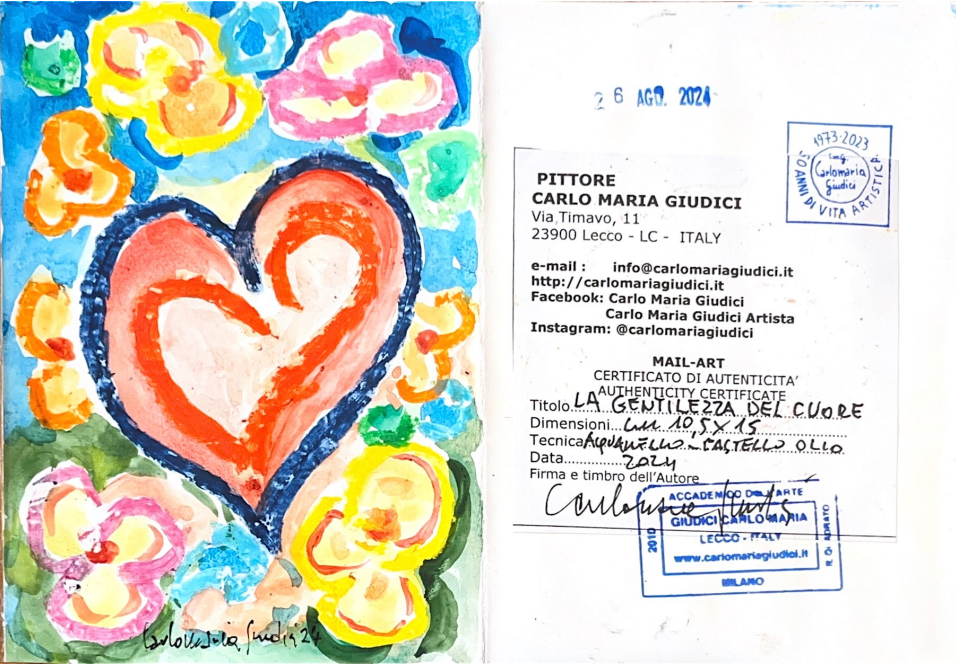 Carlo Maria Giudici 24
26 AGO. 2024
1973-2023
Carlomaria
Giudici
50 ANNI DI VITA ARTISTICA
PITTORE
CARLO MARIA GIUDICI
Via Timavo, 11
23900 Lecco - LC - ITALY
e-mail : info@carlomariagiudici.it
http://carlomariagiudici.it
Facebook: Carlo Maria Giudici
Carlo Maria Giudici Artista
Instagram: @carlomariagiudici
MAIL-ART
CERTIFICATO DI AUTENTICITA'
AUTHENTICITY CERTIFICATE
Titolo LA GENTILEZZA DEL CUORE
Dimensioni cm 10,5X15
Tecnica ACQUARELLO - PASTELLO OLIO
Data 2024
Firma e timbro dell'Autore
ACCADEMICO DELL'ARTE
GIUDICI CARLO MARIA
LECCO - ITALY
www.carlomariagiudici.it
MILANO
2010